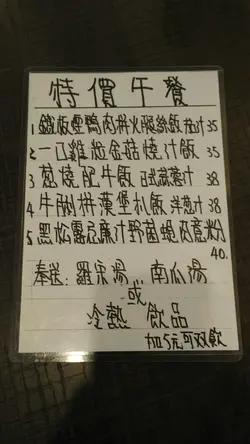 特價午餐
1 鐵板煙鴨肉拼火腿絲飯 茄汁 35
2 一口雞粒金菇燒汁飯 35
3 葱燒肥牛飯 日式蒸薯汁 38
4 牛脷拼漢堡扒飯 洋葱汁 38
5 黑松露忌廉汁野菌蜆肉意粉
40.
奉送: 羅宋湯 南瓜湯
或
冷熱 飲品
加5元可双飲